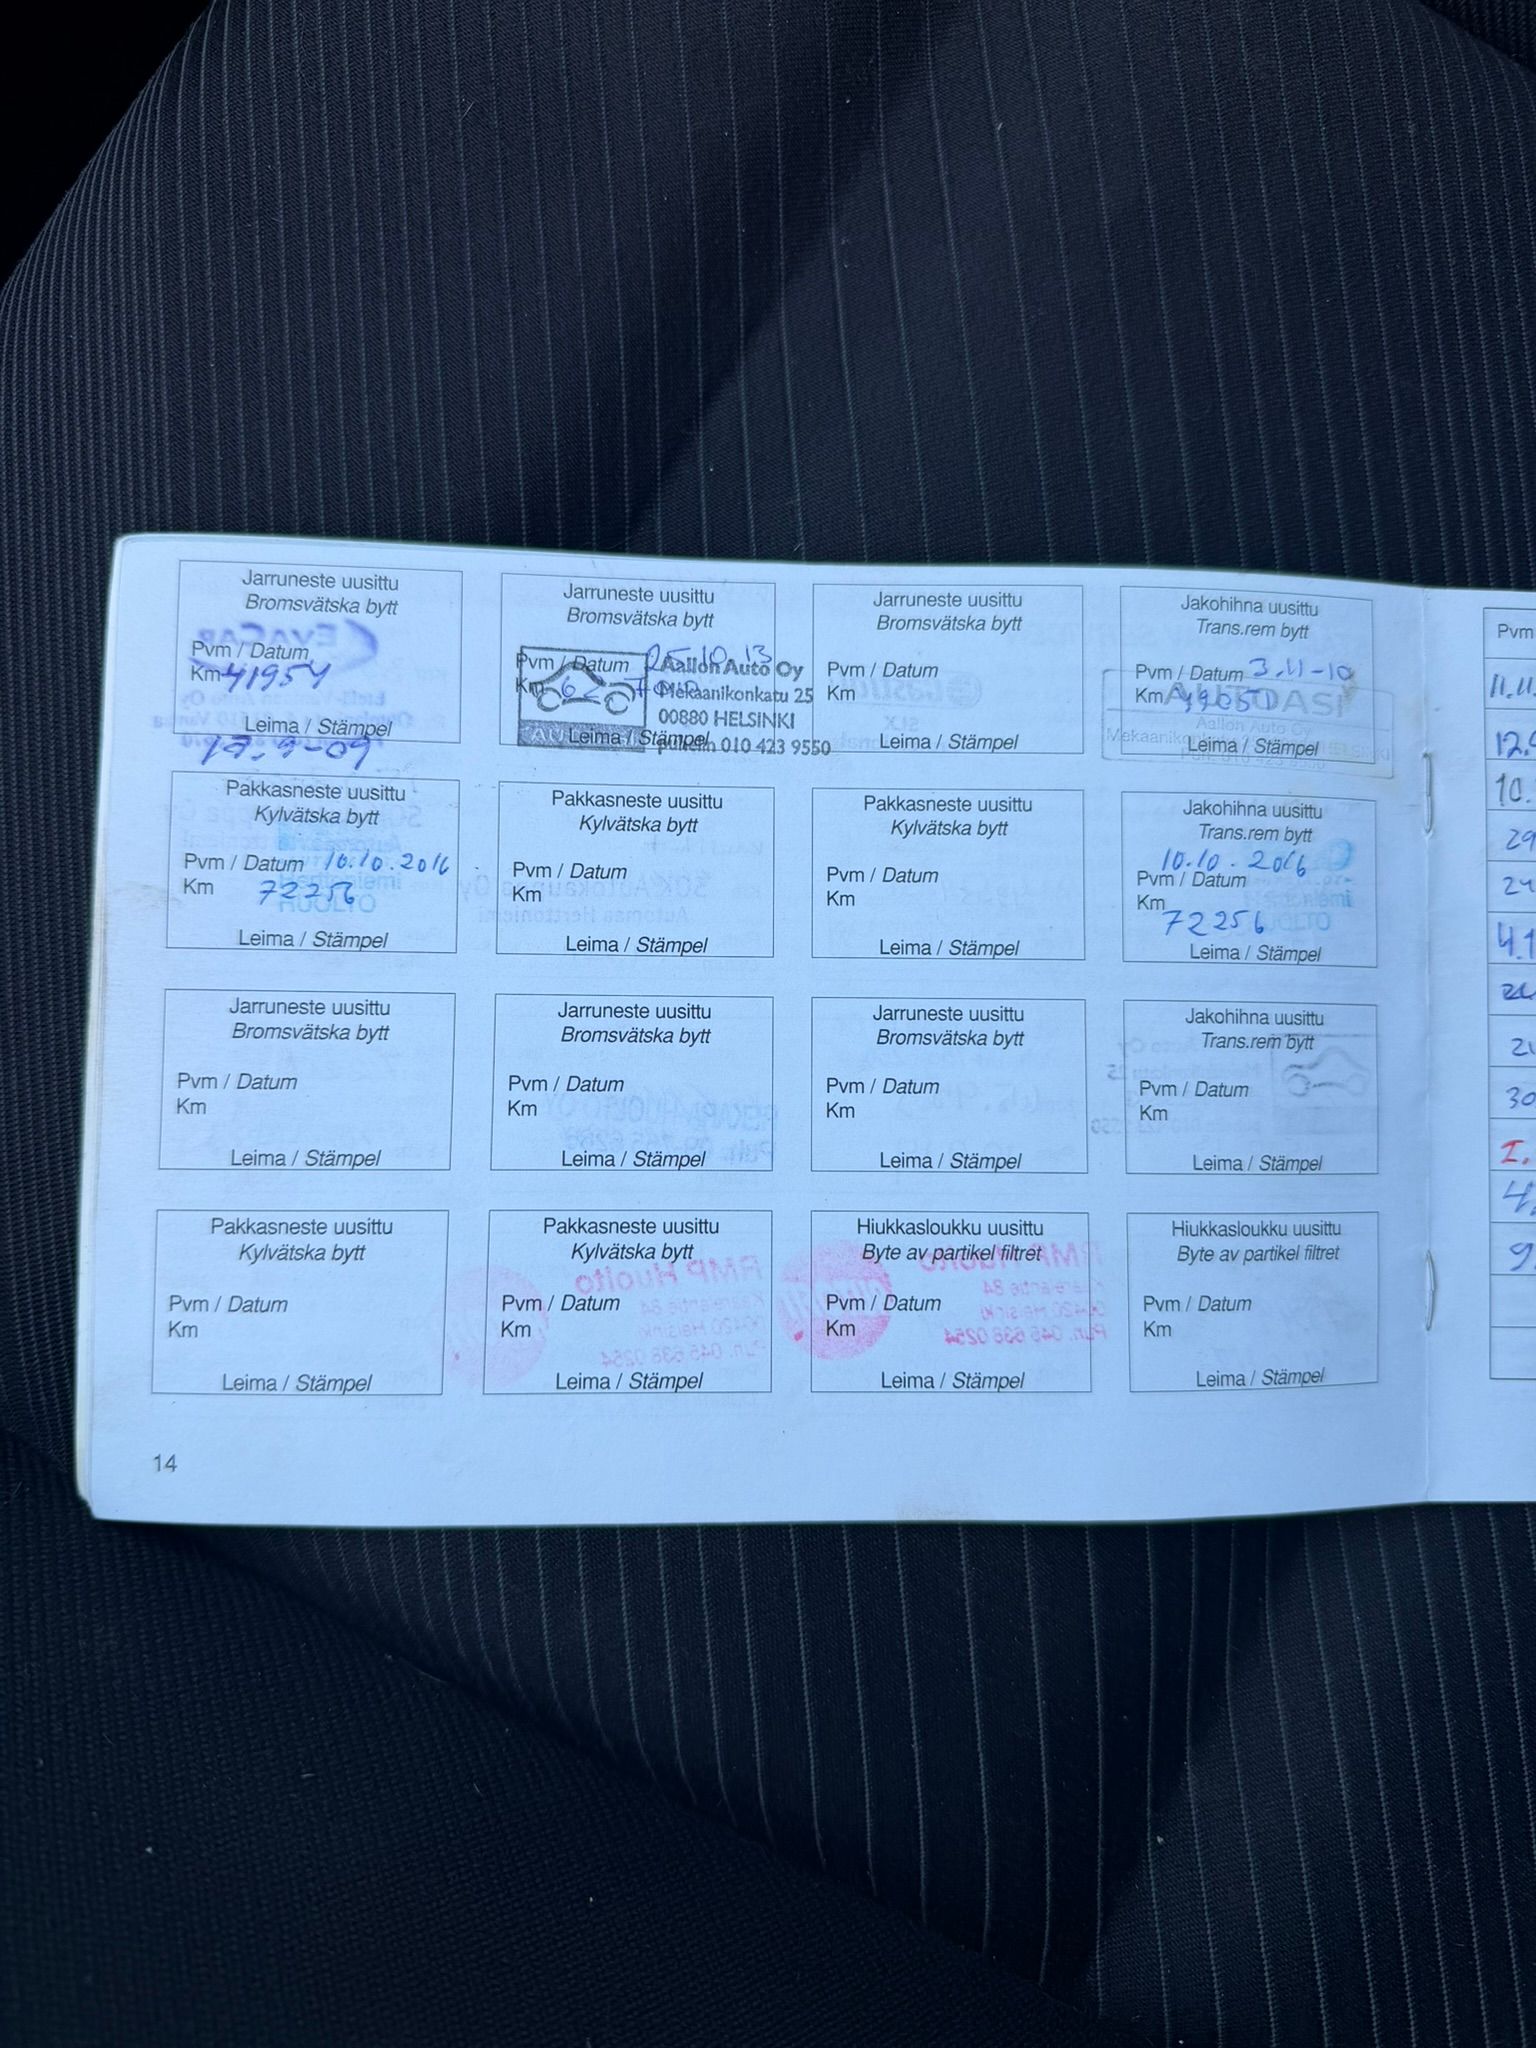 Jarruneste uusittu
Bromsvätska bytt
Pvm / Datum
Km 41954
Leima / Stämpel
17.9-09
Jarruneste uusittu
Bromsvätska bytt
Pvm / Datum 25.10.13
Km 62
Leima / Stämpel
Aallon Auto Oy
Mekaanikonkatu 25
00880 HELSINKI
puhelin 010 423 9550
Jarruneste uusittu
Bromsvätska bytt
Pvm / Datum
Km
Leima / Stämpel
Jakohihna uusittu
Trans.rem bytt
Pvm / Datum 3.11-10
Km 49050
Leima / Stämpel
AUTOASI
Aallon Auto Oy
Pakkasneste uusittu
Kylvätska bytt
Pvm / Datum 10.10.2016
Km 72256
Herttoniemi
HUOLTO
Leima / Stämpel
Pakkasneste uusittu
Kylvätska bytt
Pvm / Datum
Km
Leima / Stämpel
Pakkasneste uusittu
Kylvätska bytt
Pvm / Datum
Km
Leima / Stämpel
Jakohihna uusittu
Trans.rem bytt
10.10.2016
Pvm / Datum
Km
72256
HUOLTO
Leima / Stämpel
Jarruneste uusittu
Bromsvätska bytt
Pvm / Datum
Km
Leima / Stämpel
Jarruneste uusittu
Bromsvätska bytt
Pvm / Datum
Km
Leima / Stämpel
Jarruneste uusittu
Bromsvätska bytt
Pvm / Datum
Km
Leima / Stämpel
Jakohihna uusittu
Trans.rem bytt
Pvm / Datum
Km
Leima / Stämpel
Pakkasneste uusittu
Kylvätska bytt
Pvm / Datum
Km
Leima / Stämpel
Pakkasneste uusittu
Kylvätska bytt
Pvm / Datum
Km
Leima / Stämpel
Hiukkasloukku uusittu
Byte av partikel filtret
Pvm / Datum
Km
Leima / Stämpel
Hiukkasloukku uusittu
Byte av partikel filtret
Pvm / Datum
Km
Leima / Stämpel
14
Pvm
11.11.
10.
29
24
30